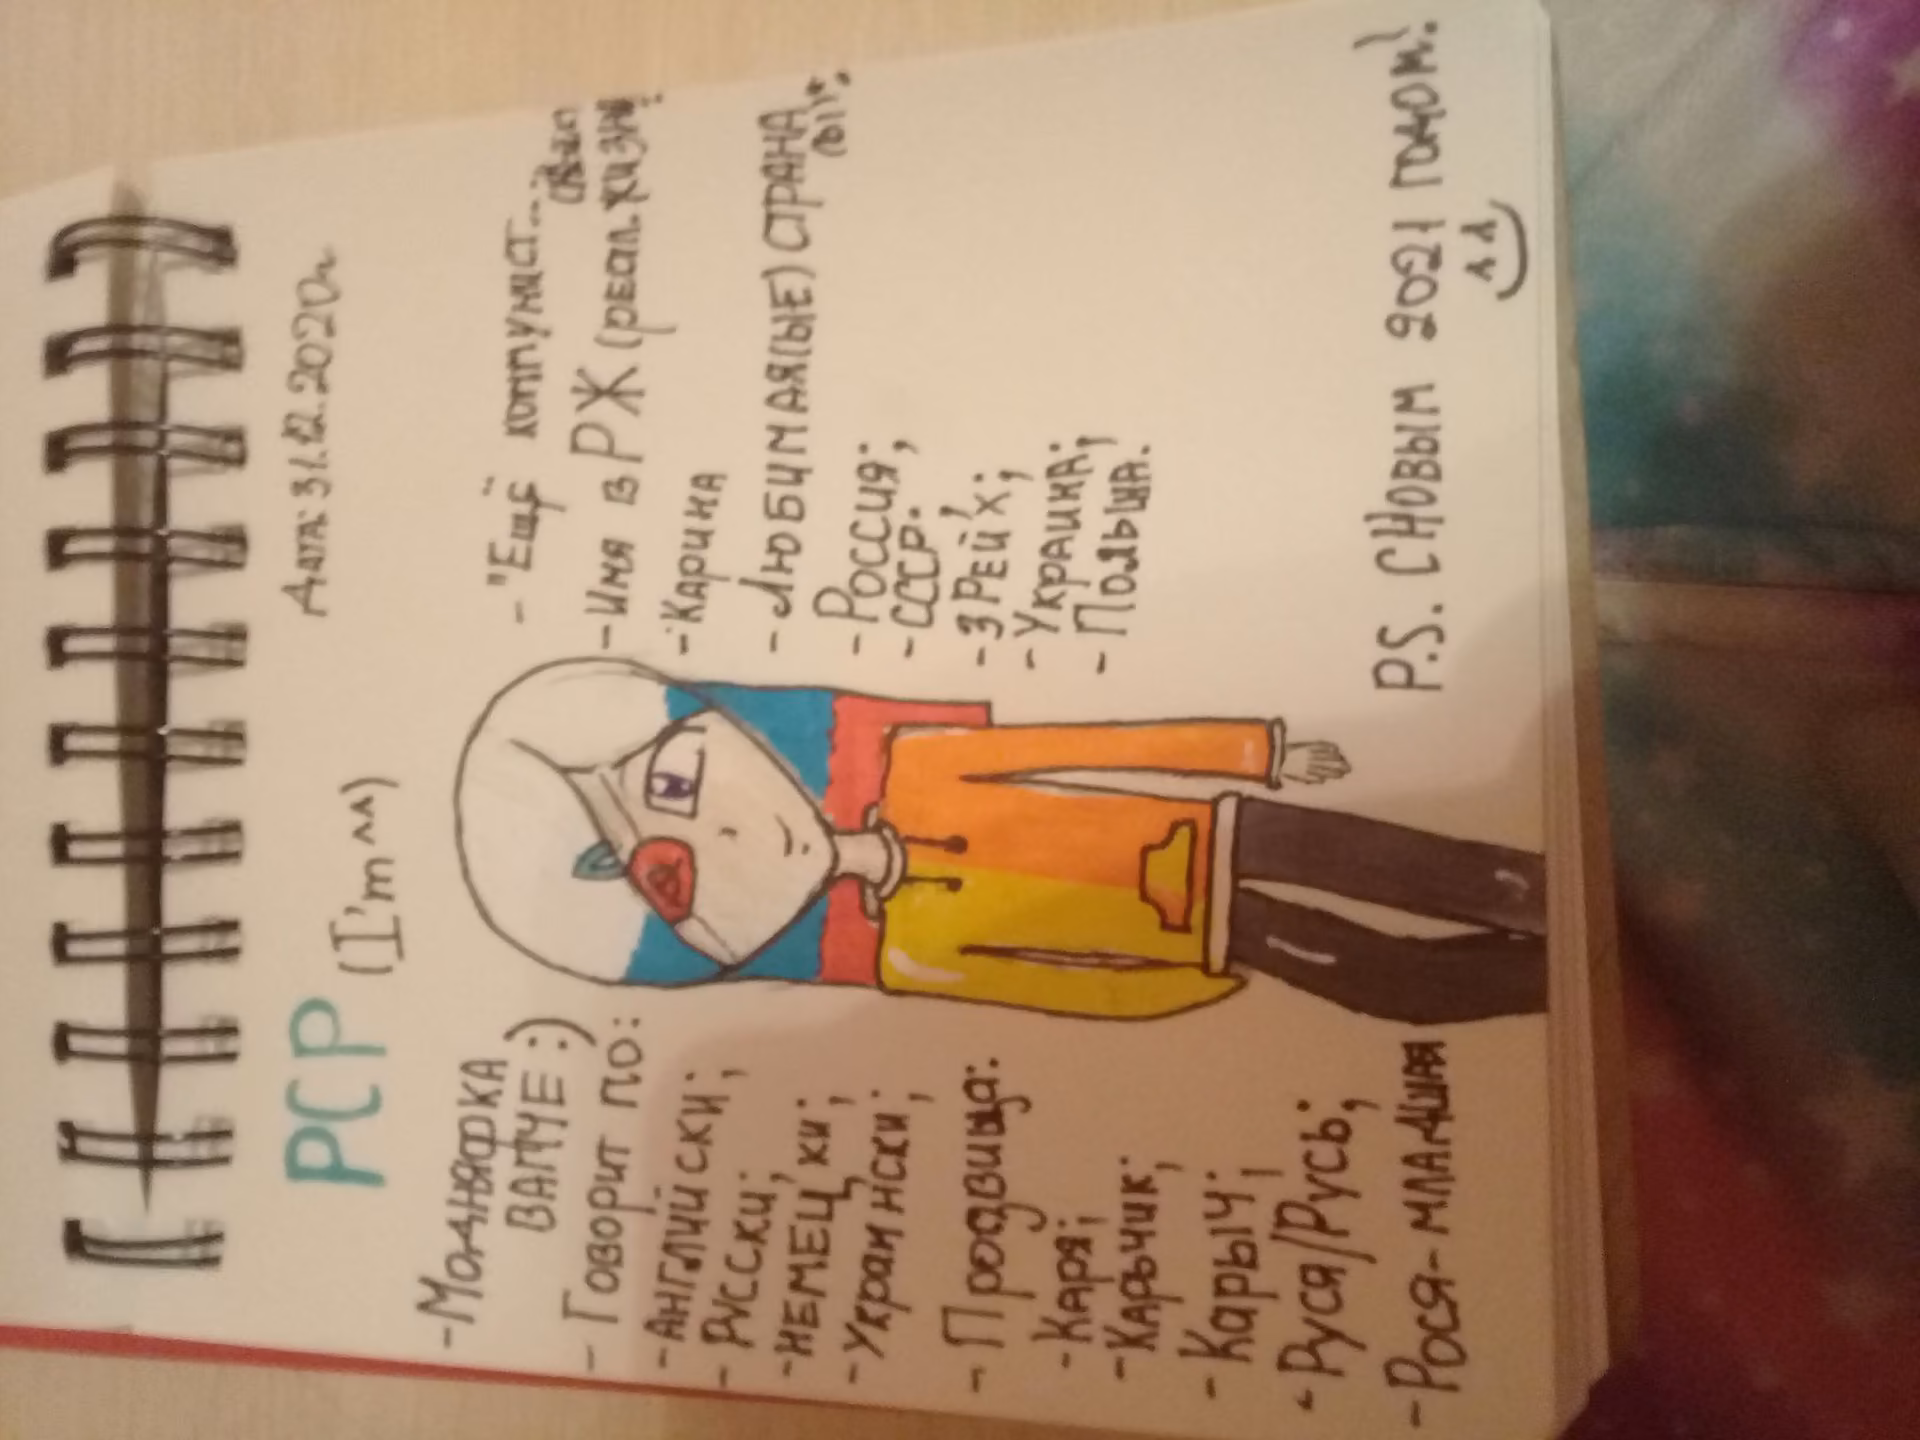 Дата: 31.12.2020г
РСР (I'm ^^)
- Модняфка
ВАПЧЕ :)
- Говорит по:
- Английски;
- Русски;
- Немецки;
- Украински;
- Прозвища:
- Каря;
- Карьчик;
- Карыч;
- Руся/Русь;
- Рося-младшая
- "Ещё коммунист...
- Имя в РЖ (реал. жизни
- Карина
- Любимая(ые) страна
(ы):
- Россия;
- СССР;
- 3 Рейх;
- Украина;
- Польша.
P.S. С Новым 2021 годом!